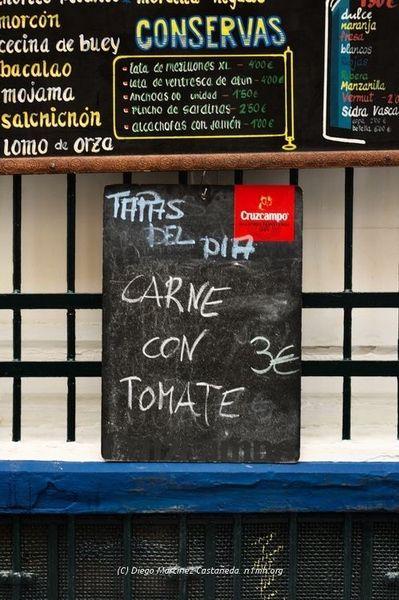 morcón
cecina de buey
bacalao
mojama
salchichón
lomo de orza
CONSERVAS
lata de mexillones XL - 4'00€
lata de ventresca de atun - 4'00€
Anchoas 00 unidad - 1'50€
pincho de sardinas - 2'50€
alcachofas con jamón - 1'00€
dulce
naranja
fresa
blancos
Ribera
Manzanilla
Vermut
Sidra Vasca
TAPAS
DEL DIA
Cruzcampo
CARNE
CON 3€
TOMATE
(C) Diego Martínez Castañeda n1mh.org